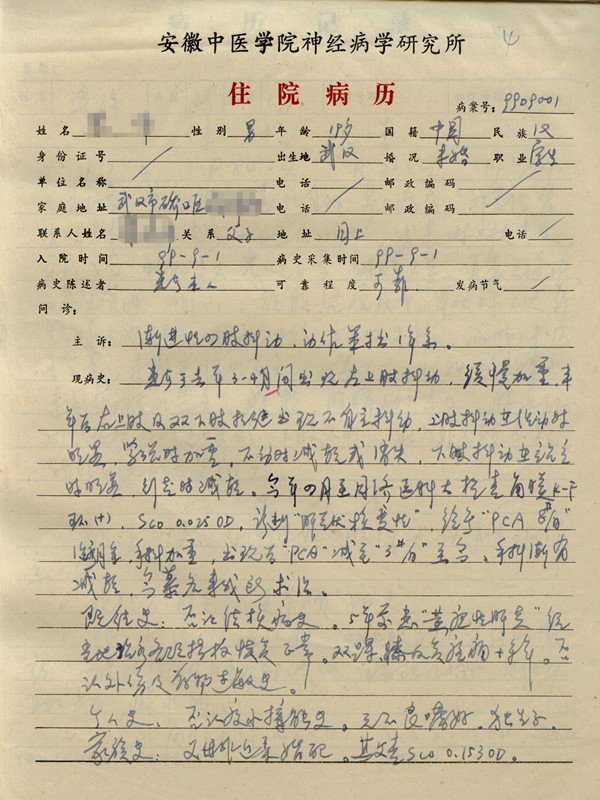 安徽中医学院神经病学研究所
4
住院病历
病案号: 9909001
姓名 性别 男 年龄 19岁 国籍 中国 民族 汉
身份证号 / 出生地 武汉 婚况 未婚 职业 学生
单位名称 / 电话 / 邮政编码 /
家庭地址 武汉市硚口 电话 / 邮政编码 /
联系人姓名 关系 父子 地址 同上 电话 /
入院时间 99-9-1 病史采集时间 99-9-1
病史陈述者 患者本人 可靠程度 可靠 发病节气 /
问诊:
主诉: 渐进性四肢抖动、动作笨拙1年余。
现病史: 患者于去年3-4月间出现左上肢抖动,缓慢加重,半
年后右上肢及双下肢相继出现不自主抖动,上肢抖动在活动时
明显,紧张时加重,不动时减轻或消失,下肢抖动在站立
时明显,行走时减轻。今年四月至同济医科大检查角膜K-F
环(+),SCO 0.025OD,诊断"肝豆状核变性",给予"PCA
手抖加重,出现 "PCA"减至" 至今,手抖渐有
减轻,
既往史:否认结核病史。5年前患"黄疸性肝炎"经
当地 恢复正常。双踝、膝 十余年。否
认外伤及药物过敏史。
个人史:否认疫水接触史,无不良嗜好,独生子。
家族史:父母非近亲婚配。其父查SCO 0.153OD。